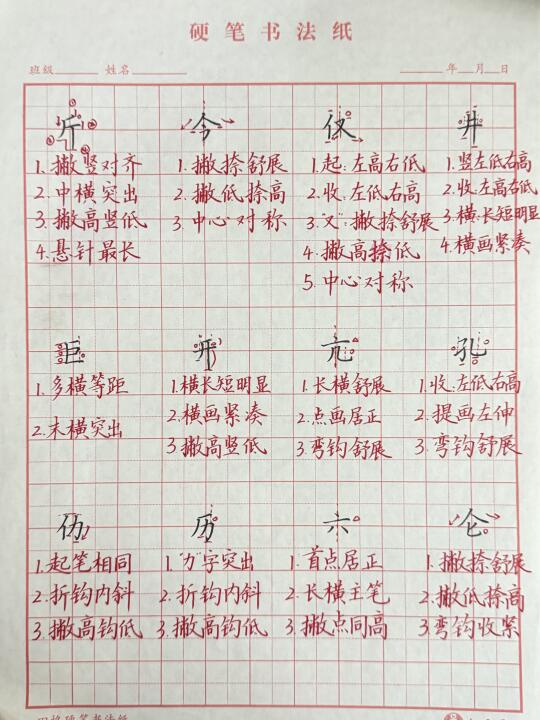 硬笔书法纸
班级 姓名 年 月 日
斤 今 仪 井
1. 撇竖对齐
2. 中横突出
3. 撇高竖低
4. 悬针最长
1. 撇捺舒展
2. 撇低捺高
3. 中心对称
1. 起:左高右低
2. 收:左低右高
3. "义":撇捺舒展
4. 撇高捺低
5. 中心对称
1. 竖左低右高
2. 收:左高右低
3. 横:长短明显
4. 横画紧凑
巨 开 亢 孔
1. 多横等距
2. 末横突出
1. 横长短明显
2. 横画紧凑
3. 撇高竖低
1. 长横舒展
2. 点画居正
3. 弯钩舒展
1. 收:左低右高
2. 提画左伸
3. 弯钩舒展
仂 历 六 仑
1. 起笔相同
2. 折钩内斜
3. 撇高钩低
1. "力"字突出
2. 折钩内斜
3. 撇高钩低
1. 首点居正
2. 长横主笔
3. 撇点同高
1. 撇捺舒展
2. 撇低捺高
3. 弯钩收紧